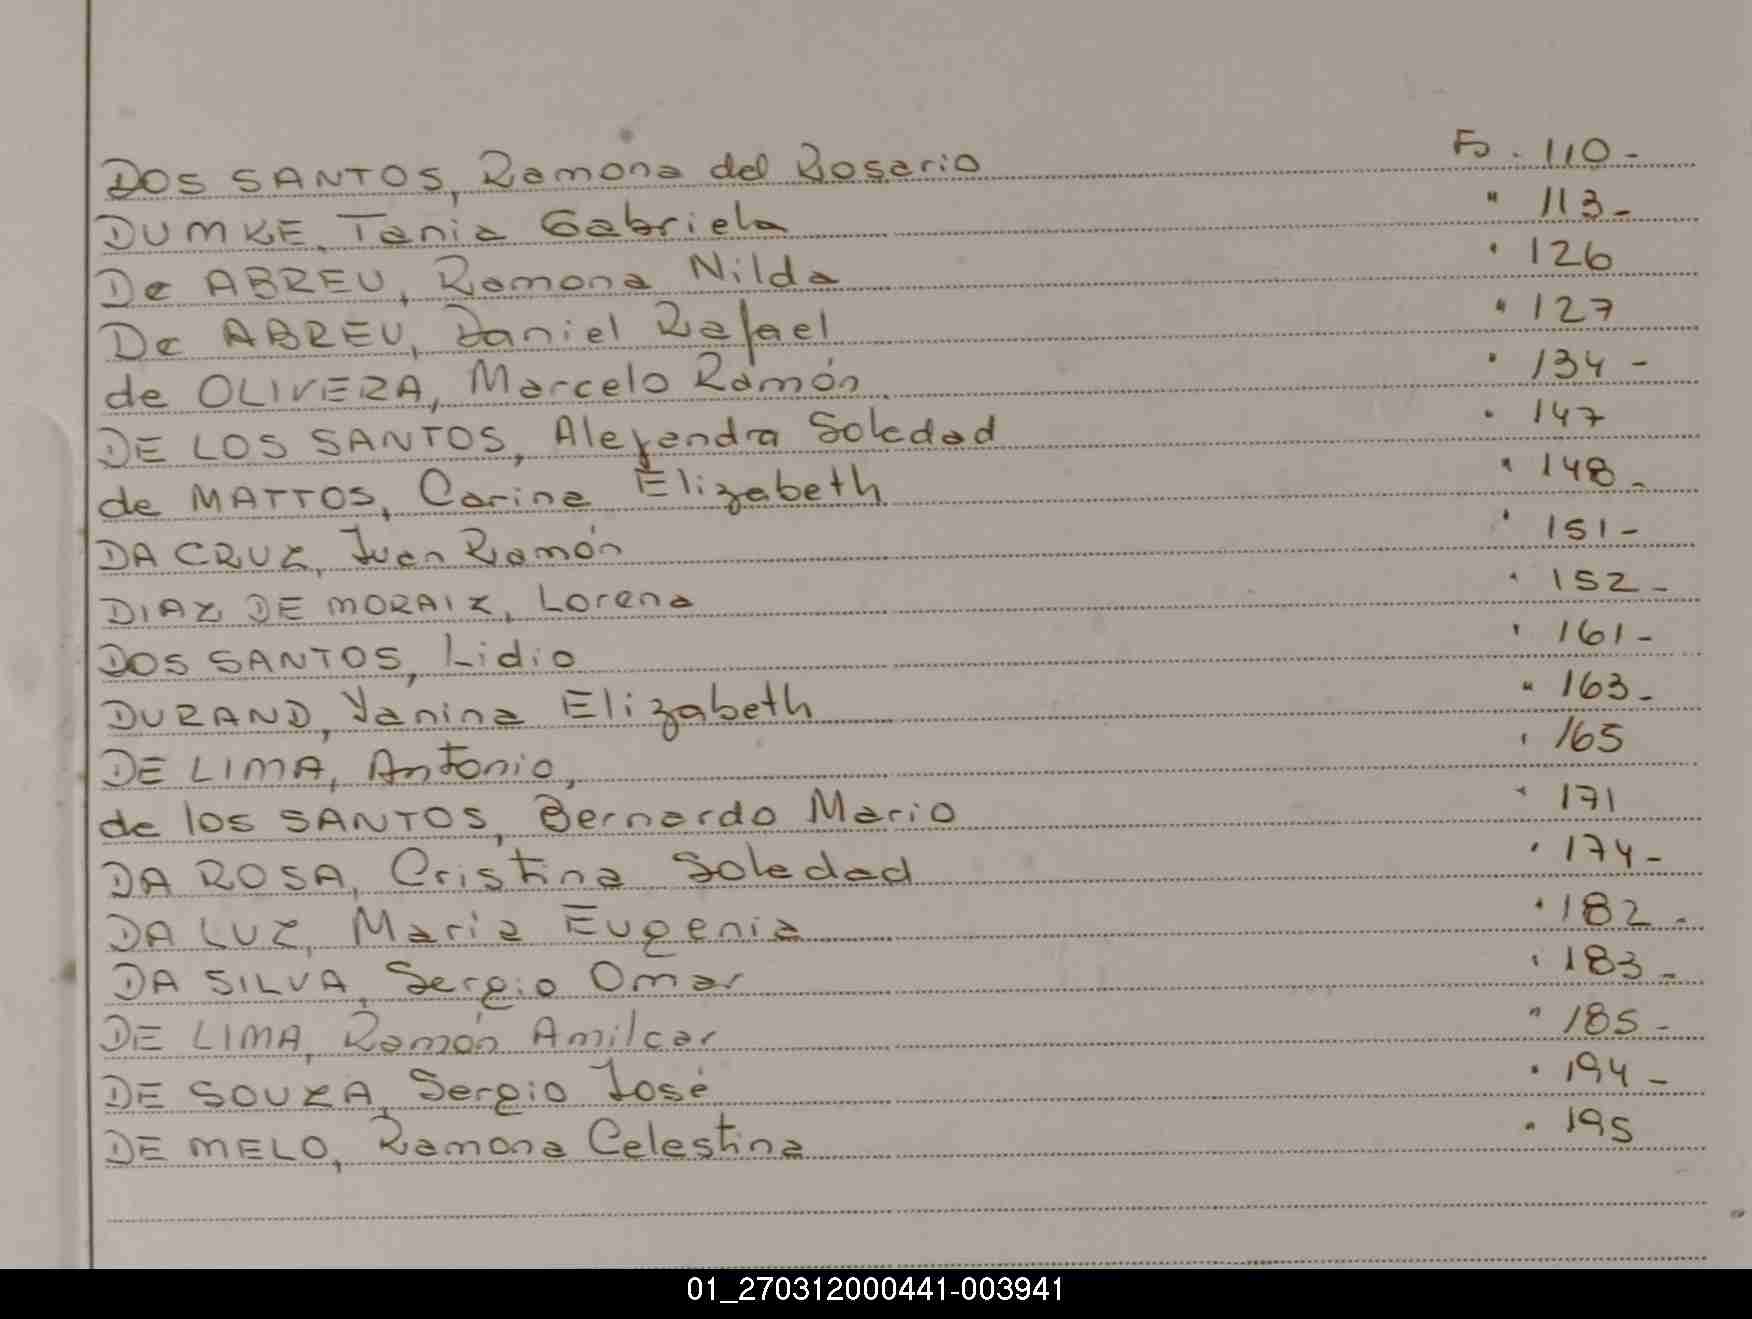 DOS SANTOS, Ramona del Rosario Fo. 110-
DUMKE, Tania Gabriela " 113-
De ABREU, Ramona Nilda " 126
De ABREU, Daniel Rafael " 127
de OLIVERA, Marcelo Ramón " 134-
DE LOS SANTOS, Alejandra Soledad " 147
de MATTOS, Carina Elizabeth " 148-
DA CRUZ, Juan Ramón " 151-
DIAZ DE MORAIZ, Lorena " 152-
DOS SANTOS, Lidio " 161-
DURAND, Yanina Elizabeth " 163-
DE LIMA, Antonio, " 165
de los SANTOS, Bernardo Mario " 171
DA ROSA, Cristina Soledad " 174-
DA LUZ, Maria Eugenia " 182-
DA SILVA, Sergio Omar " 183-
DE LIMA, Ramón Amilcar " 185-
DE SOUZA, Sergio José " 194-
DE MELO, Ramona Celestina " 195
01_270312000441-003941